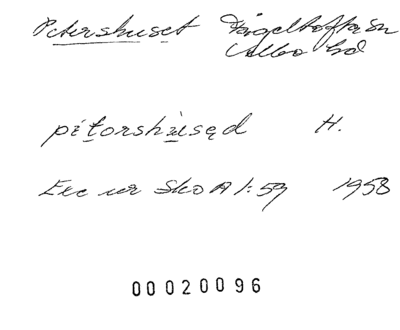 Petershuset Fågeltofta sn
Albo hd
pètorshùsąd H.
Exc ur Sko A 1:59 1958
00020096